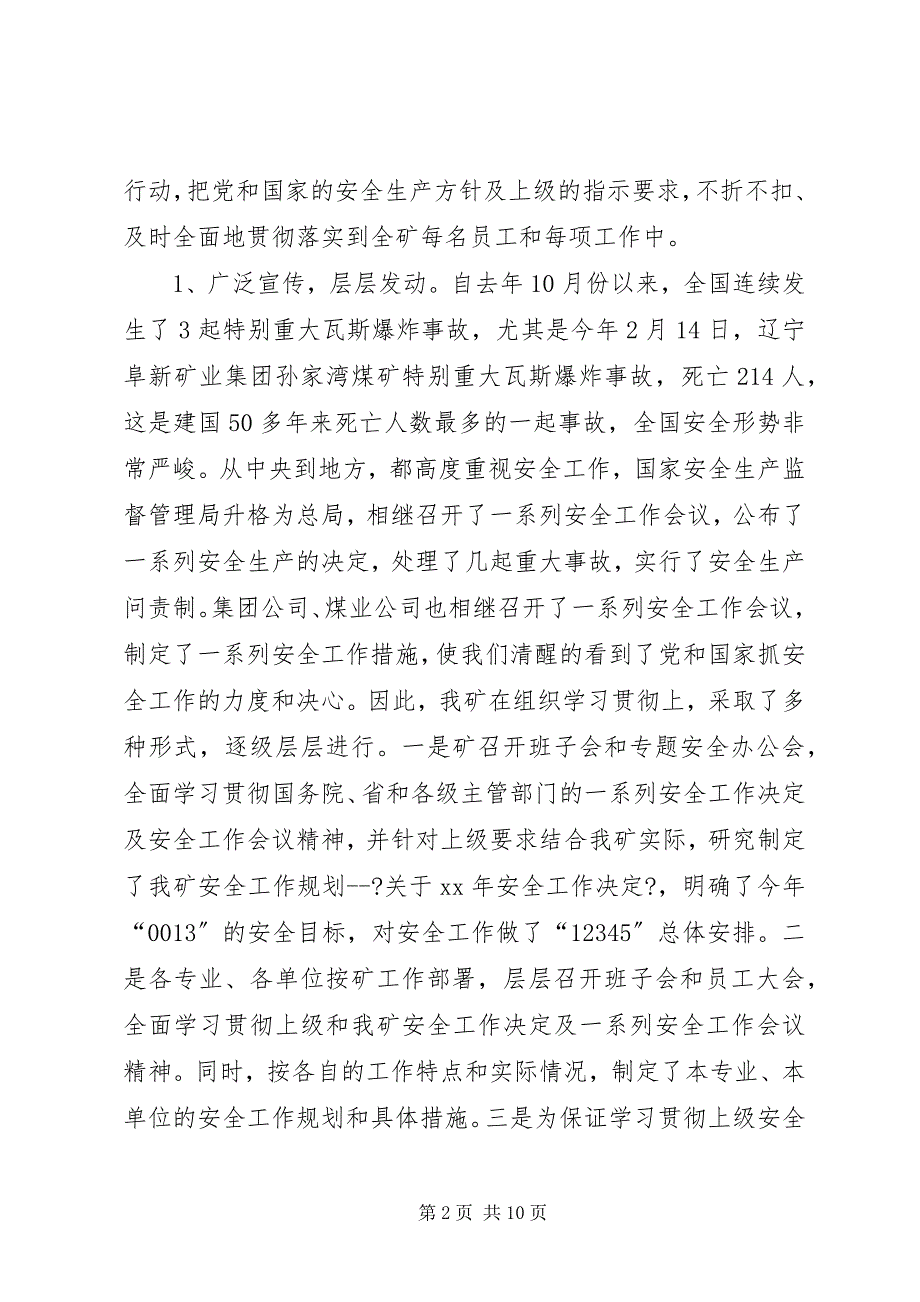 行动,把党和国家的安全生产方针及上级的指示要求,不折不扣、
及时全面地贯彻落实到全矿每名员工和每项工作中。
1、广泛宣传，层层发动。自去年 10 月份以来，全国连续发
生了 3 起特别重大瓦斯爆炸事故，尤其是今年 2 月 14 日，辽宁
阜新矿业集团孙家湾煤矿特别重大瓦斯爆炸事故，死亡 214 人，
这是建国 50 多年来死亡人数最多的一起事故，全国安全形势非
常严峻。从中央到地方，都高度重视安全工作，国家安全生产监
督管理局升格为总局,相继召开了一系列安全工作会议,公布了
一系列安全生产的决定,处理了几起重大事故,实行了安全生产
问责制。集团公司、煤业公司也相继召开了一系列安全工作会议,
制定了一系列安全工作措施,使我们清醒的看到了党和国家抓安
全工作的力度和决心。因此，我矿在组织学习贯彻上，采取了多
种形式，逐级层层进行。一是矿召开班子会和专题安全办公会，
全面学习贯彻国务院、省和各级主管部门的一系列安全工作决定
及安全工作会议精神，并针对上级要求结合我矿实际，研究制定
了我矿安全工作规划--?关于 xx 年安全工作决定?，明确了今年
“0013〞的安全目标，对安全工作做了“12345〞总体安排。二
是各专业、各单位按矿工作部署，层层召开班子会和员工大会，
全面学习贯彻上级和我矿安全工作决定及一系列安全工作会议
精神。同时，按各自的工作特点和实际情况，制定了本专业、本
单位的安全工作规划和具体措施。三是为保证学习贯彻上级安全
第 2 页 共 10 页